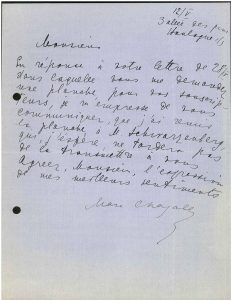 12/V
3 allée des pins
Boulogne s/s
Monsieur
En réponse à votre lettre de 28/IV
dans laquelle vous me demandez
une planche pour vos souscrip-
teurs, je m'empresse de vous
communiquer, que j'ai remis
la planche à M. Schwarzenberg
qui, j'espère ne tardera pas
de la transmettre à vous
Agréez, Monsieur, l'expression
de mes meilleurs sentiments
Marc Chagall